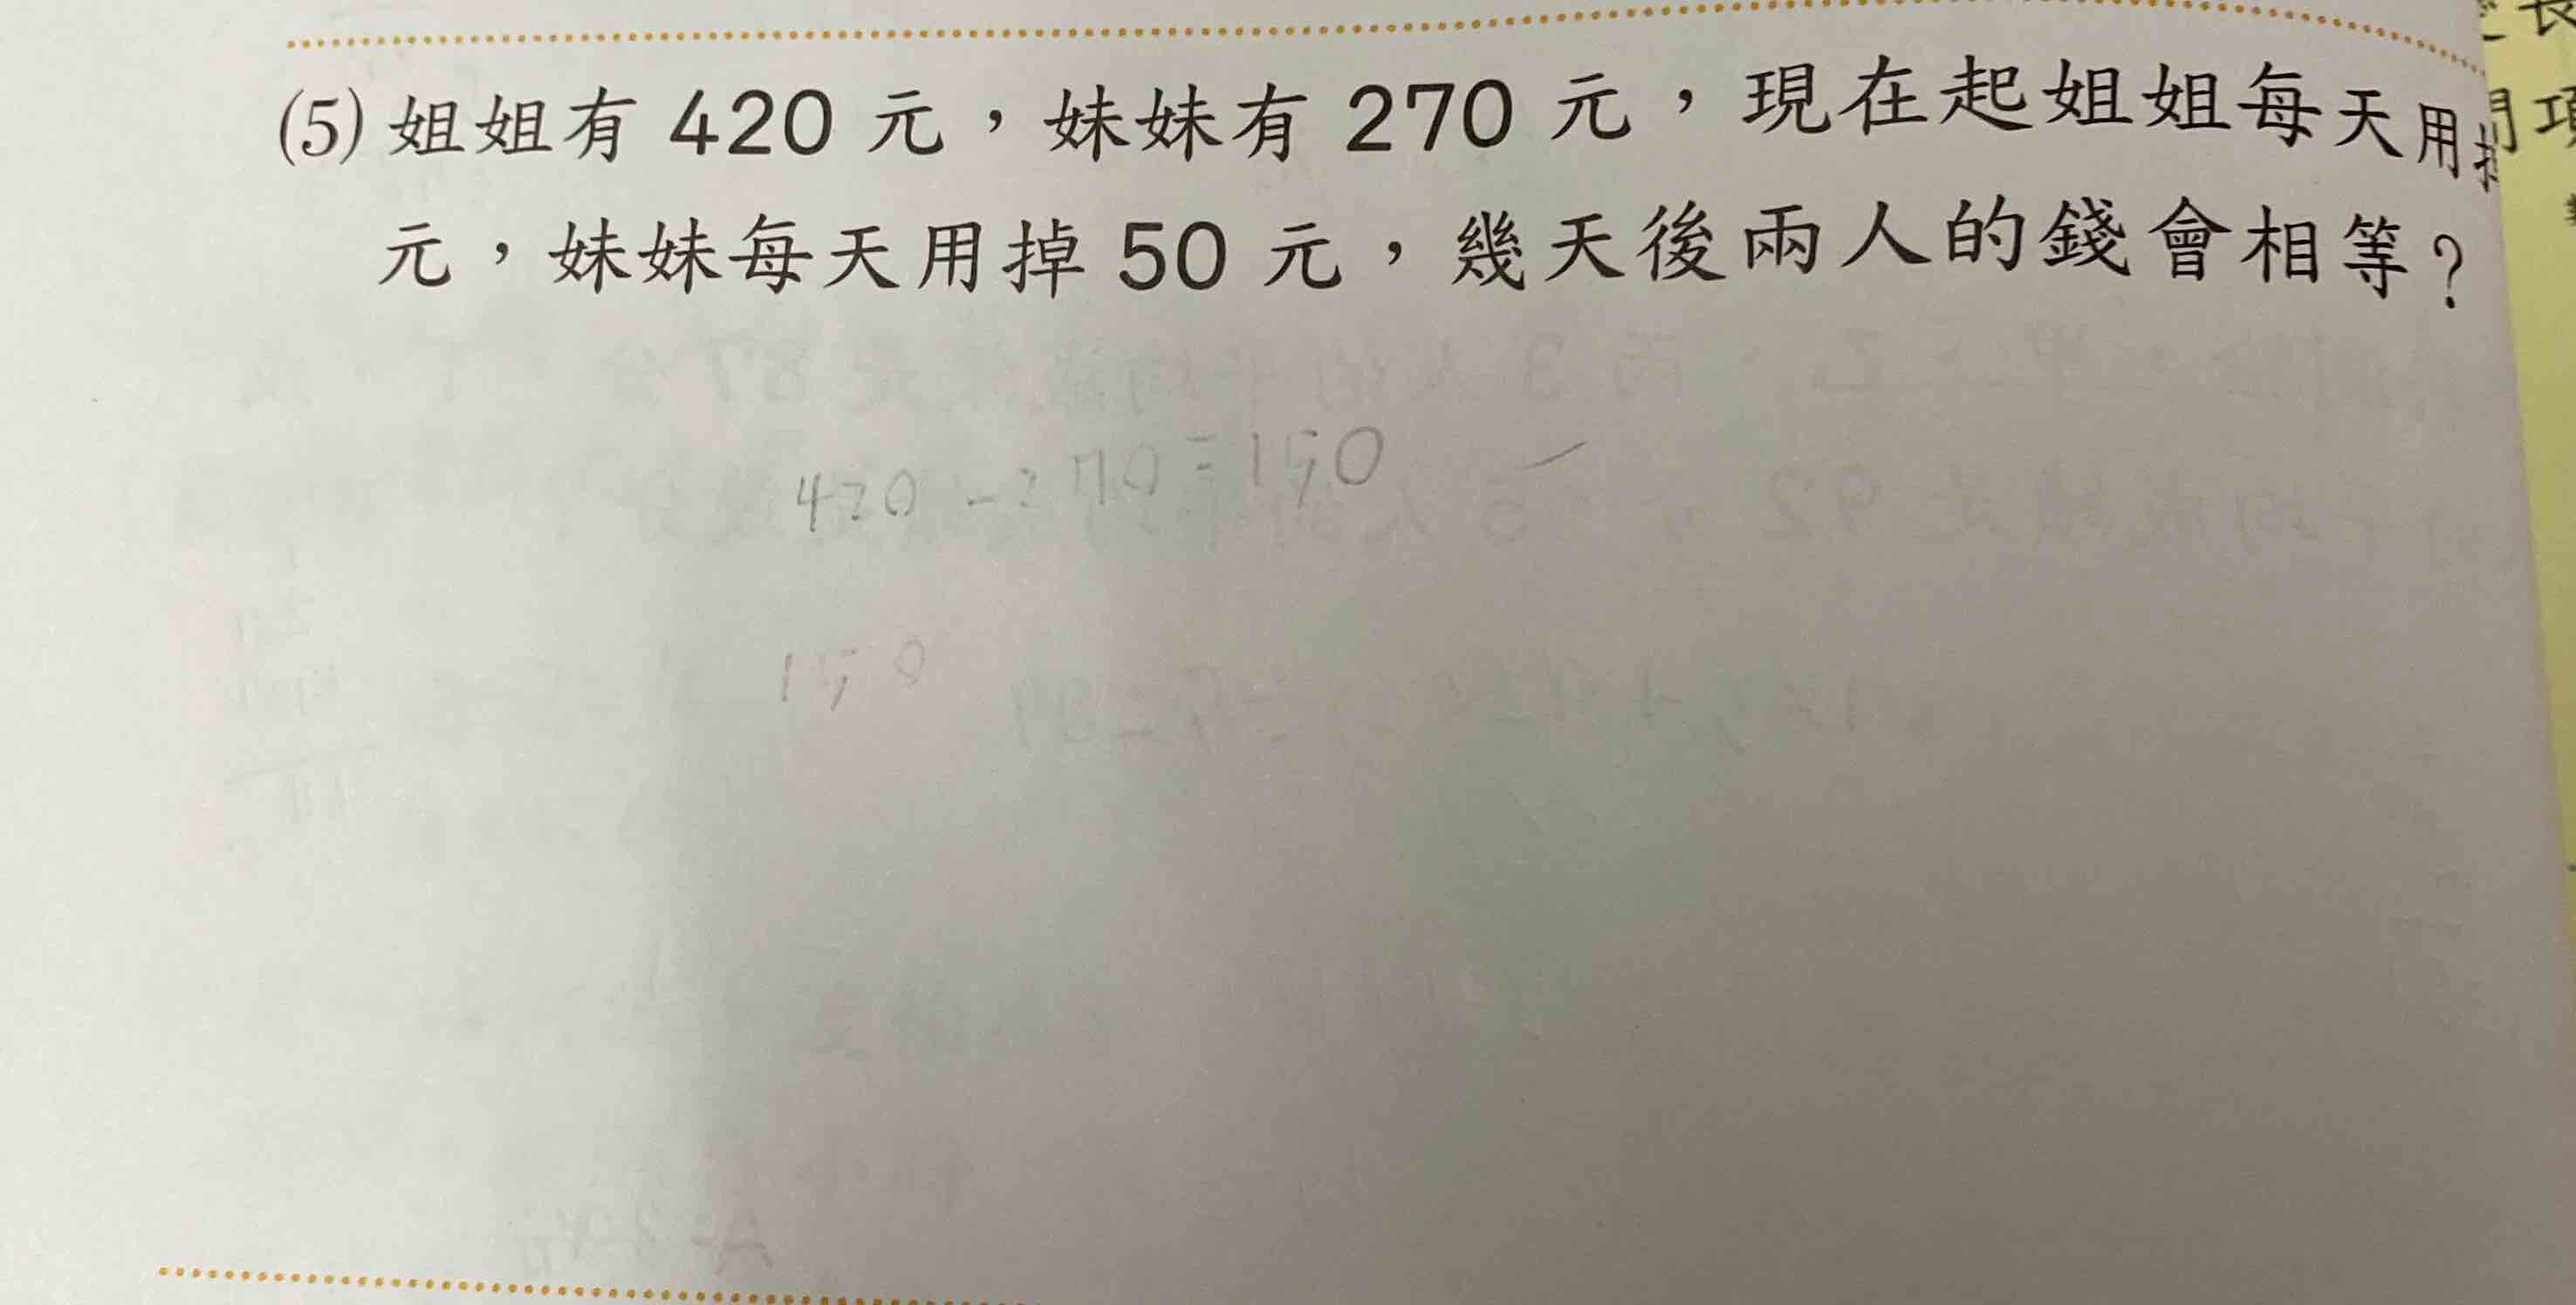 (5) 姐姐有 420 元，妹妹有 270 元，現在起姐姐每天用掉
元，妹妹每天用掉 50 元，幾天後兩人的錢會相等？
420 - 270 = 150
150